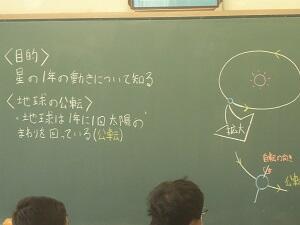 〈目的〉
星の1年の動きについて知る
〈地球の公転〉
・地球は1年に1回太陽の
まわりを回っている(公転)
拡大
自転の向き
公転